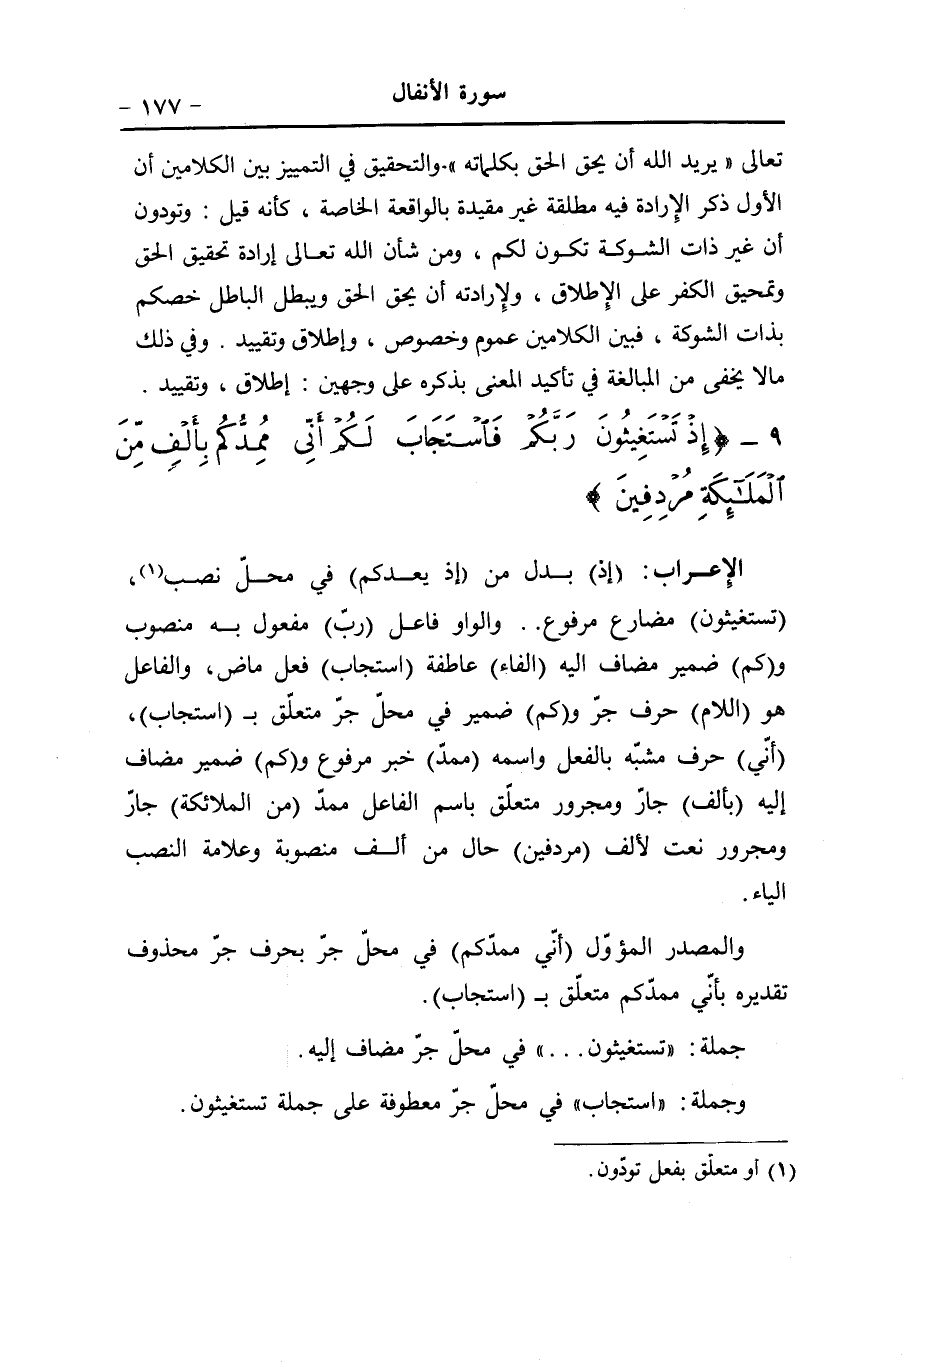 سورة الأنفال
- ١٧٧ -
تعالى « يريد الله أن يحق الحق بكلماته ».والتحقيق في التمييز بين الكلامين أن
الأول ذكر الإرادة فيه مطلقة غير مقيدة بالواقعة الخاصة ، كأنه قيل : وتودون
أن غير ذات الشوكة تكون لكم ، ومن شأن الله تعالى إرادة تحقيق الحق
وتمحيق الكفر على الإطلاق ، ولإرادته أن يحق الحق ويبطل الباطل خصكم
بذات الشوكة ، فبين الكلامين عموم وخصوص ، وإطلاق وتقييد . وفي ذلك
مالا يخفى من المبالغة في تأكيد المعنى بذكره على وجهين : إطلاق ، وتقييد .
٩ - ﴿إِذْ تَسْتَغِيثُونَ رَبَّكُمْ فَٱسْتَجَابَ لَكُمْ أَنِّي مُمِدُّكُم بِأَلْفٍ مِّنَ
ٱلْمَلَـٰٓئِكَةِ مُرْدِفِينَ ﴾
الإعراب: (إذ) بدل من (إذ يعدكم) في محلّ نصب(١)،
(تستغيثون) مضارع مرفوع. . والواو فاعل (ربّ) مفعول به منصوب
و(كم) ضمير مضاف اليه (الفاء) عاطفة (استجاب) فعل ماض، والفاعل
هو (اللام) حرف جرّ و(كم) ضمير في محلّ جرّ متعلّق بـ (استجاب)،
(أنّي) حرف مشبّه بالفعل واسمه (ممدّ) خبر مرفوع و(كم) ضمير مضاف
إليه (بألف) جارّ ومجرور متعلّق باسم الفاعل ممدّ (من الملائكة) جارّ
ومجرور نعت لألف (مردفين) حال من ألف منصوبة وعلامة النصب
الياء.
والمصدر المؤوّل (أنّي ممدّكم) في محلّ جرّ بحرف جرّ محذوف
تقديره بأنّي ممدّكم متعلّق بـ (استجاب).
جملة: «تستغيثون. . .» في محلّ جرّ مضاف إليه.
وجملة: «استجاب» في محلّ جرّ معطوفة على جملة تستغيثون.
(١) أو متعلّق بفعل تودّون.